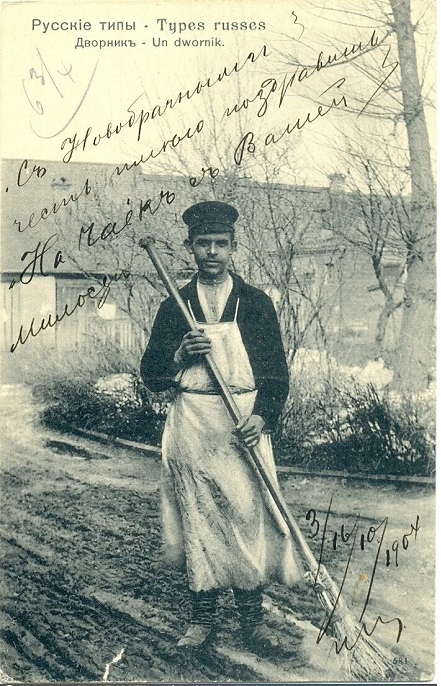 Русскіе типы - Types russes
Дворникъ - Un dwornik.
63/4
"Съ Новобрачнымъ
честь имѣю поздравить
"На чаёкъ съ Вашей
милости
3/16/10 1904
581